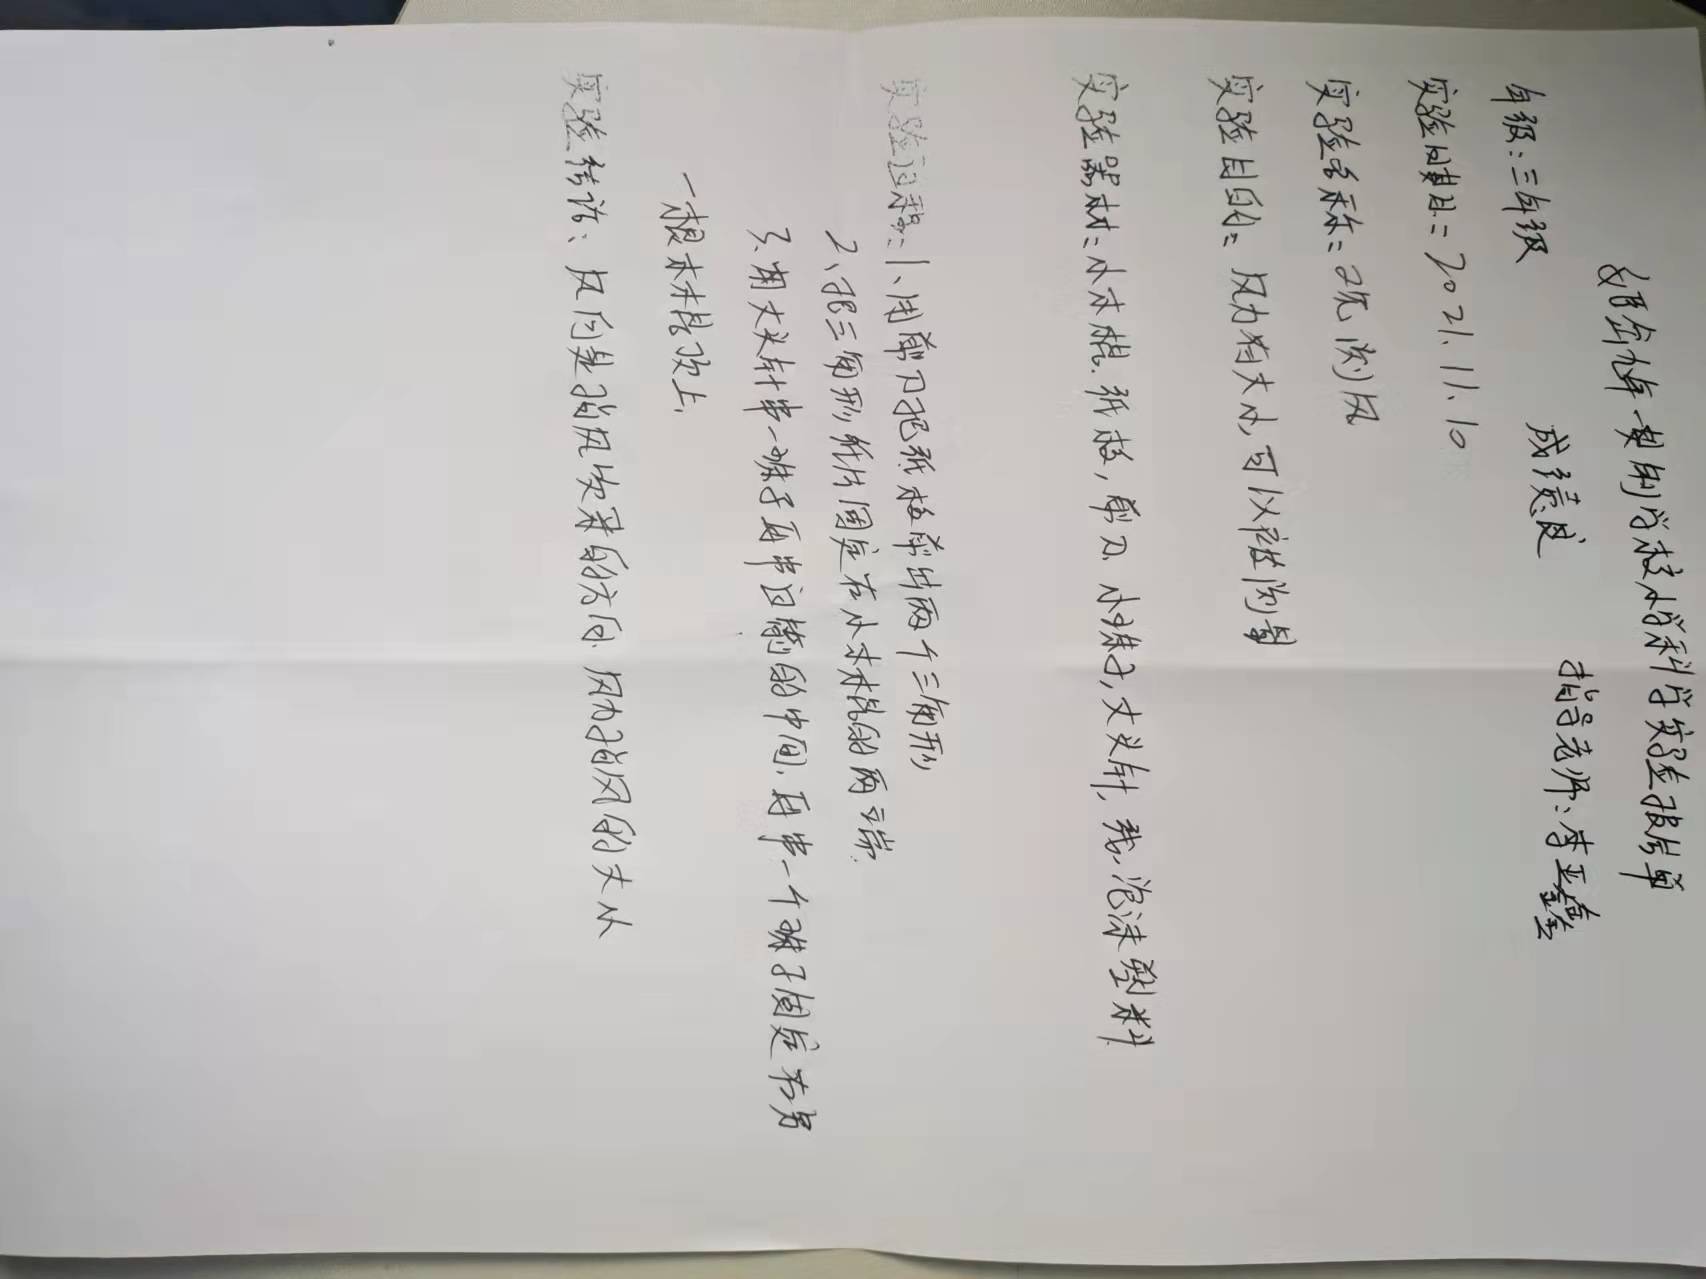 九年一贯制学校小学科学实验报告单
年级：三年级 成绩 指导老师：李亚鑫
实验日期：2021.11.10
实验名称：观测风
实验目的：风力有大小，可以在测量
实验器材：小木棍.纸板，剪刀 小珠子，大头针，线、泡沫塑料
实验过程：1、用剪刀把纸板剪出两个三角形
2、把三角形纸片固定在小木棍的两端.
3、用大头针串一珠子再串过的中间.再串一个珠子固定在另
一根木棍顶上.
实验结论：风向是指风吹来的方向.风力指风的大小